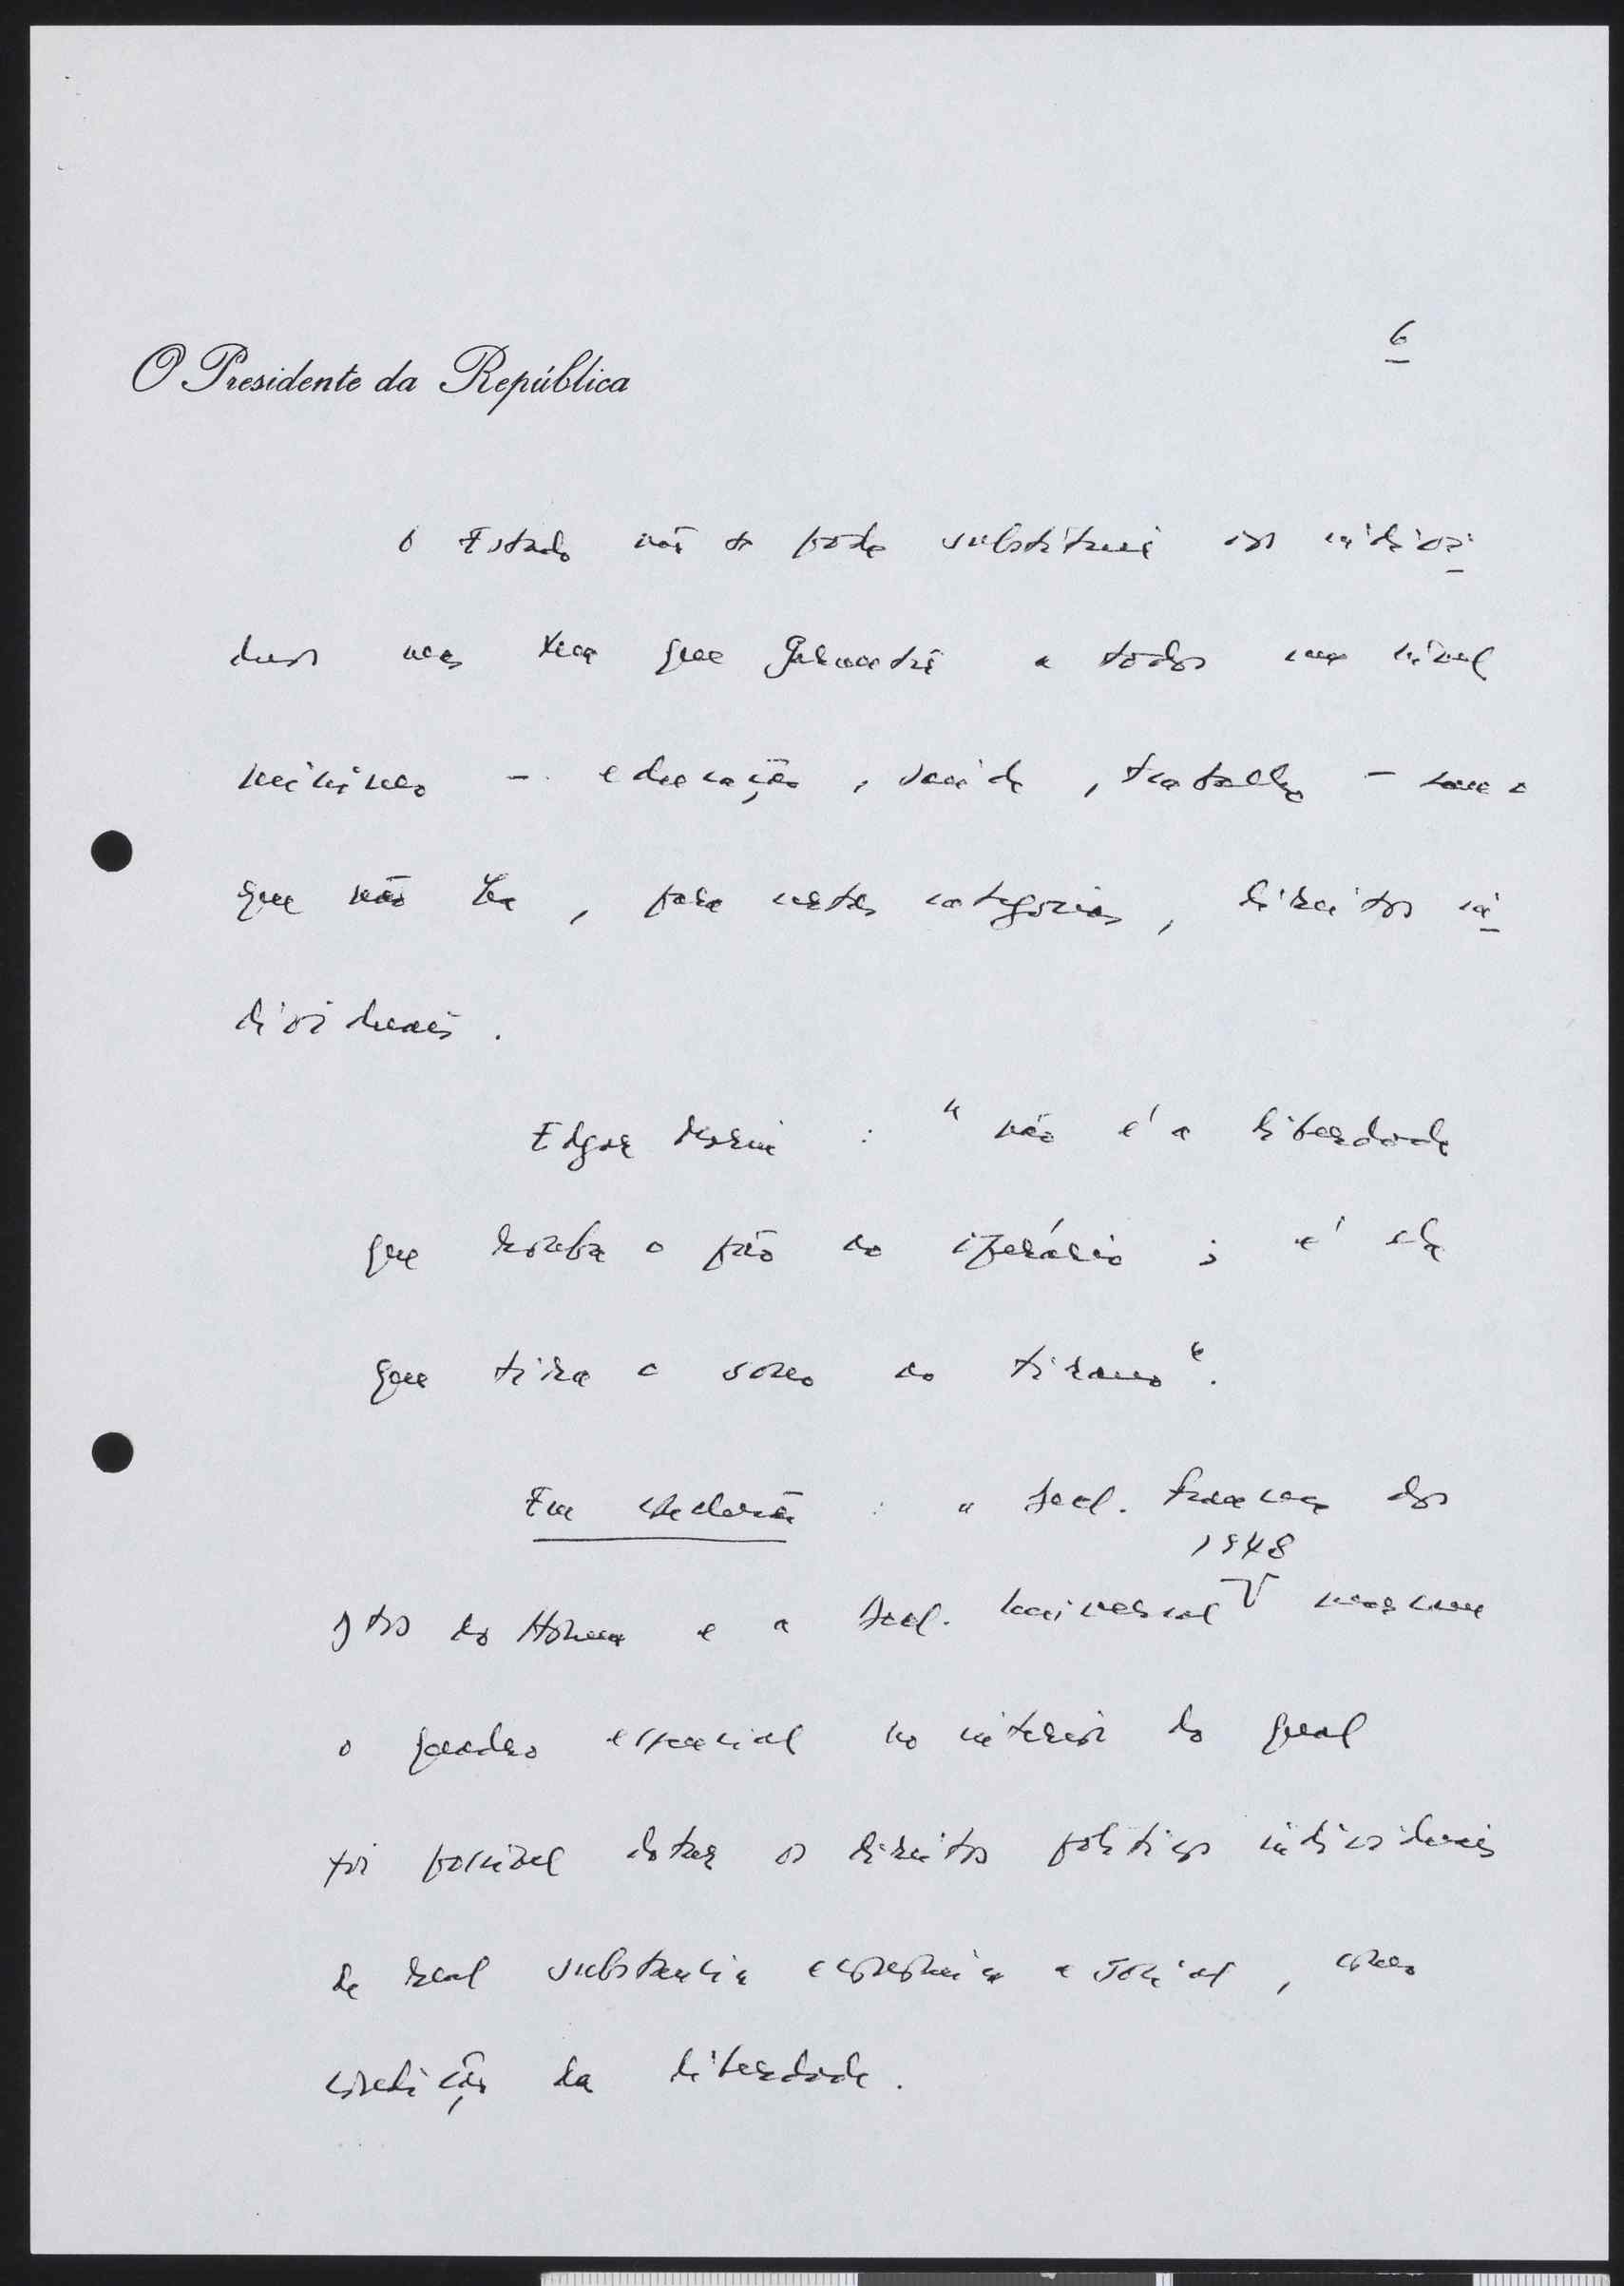 6
O Presidente da República
O Estado não se pode substituir aos indivi
duos mas tem que garantir a todos um nível
mínimo - educação, saúde, trabalho - sem o
que não há, para certas categorias, direitos in
dividuais.
Edgar Morin : "não é a liberdade
que rouba o pão ao operário ; é ela
que tira o sono ao tirano".
Em : " Decl. francesa dos
Dtos do Homem e a Decl. Universal 1948 marcam
o quadro essencial no interior do qual
foi possível dotar os direitos políticos individuais
de real substancia económica e social, como
condição da liberdade.